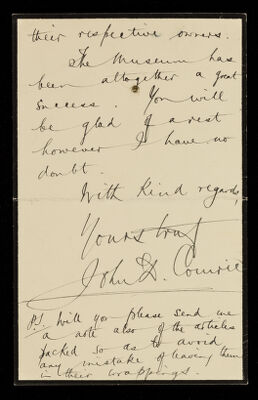 their respective owners.
The Museum has
been altogether a great
success. You will
be glad of a rest
however I have no
doubt.
With kind regards,
Yours truly
John D. Comrie
P.S. Will you please send me
a note also of the articles
packed so as to avoid
any mistake of leaving them
in their wrappings.